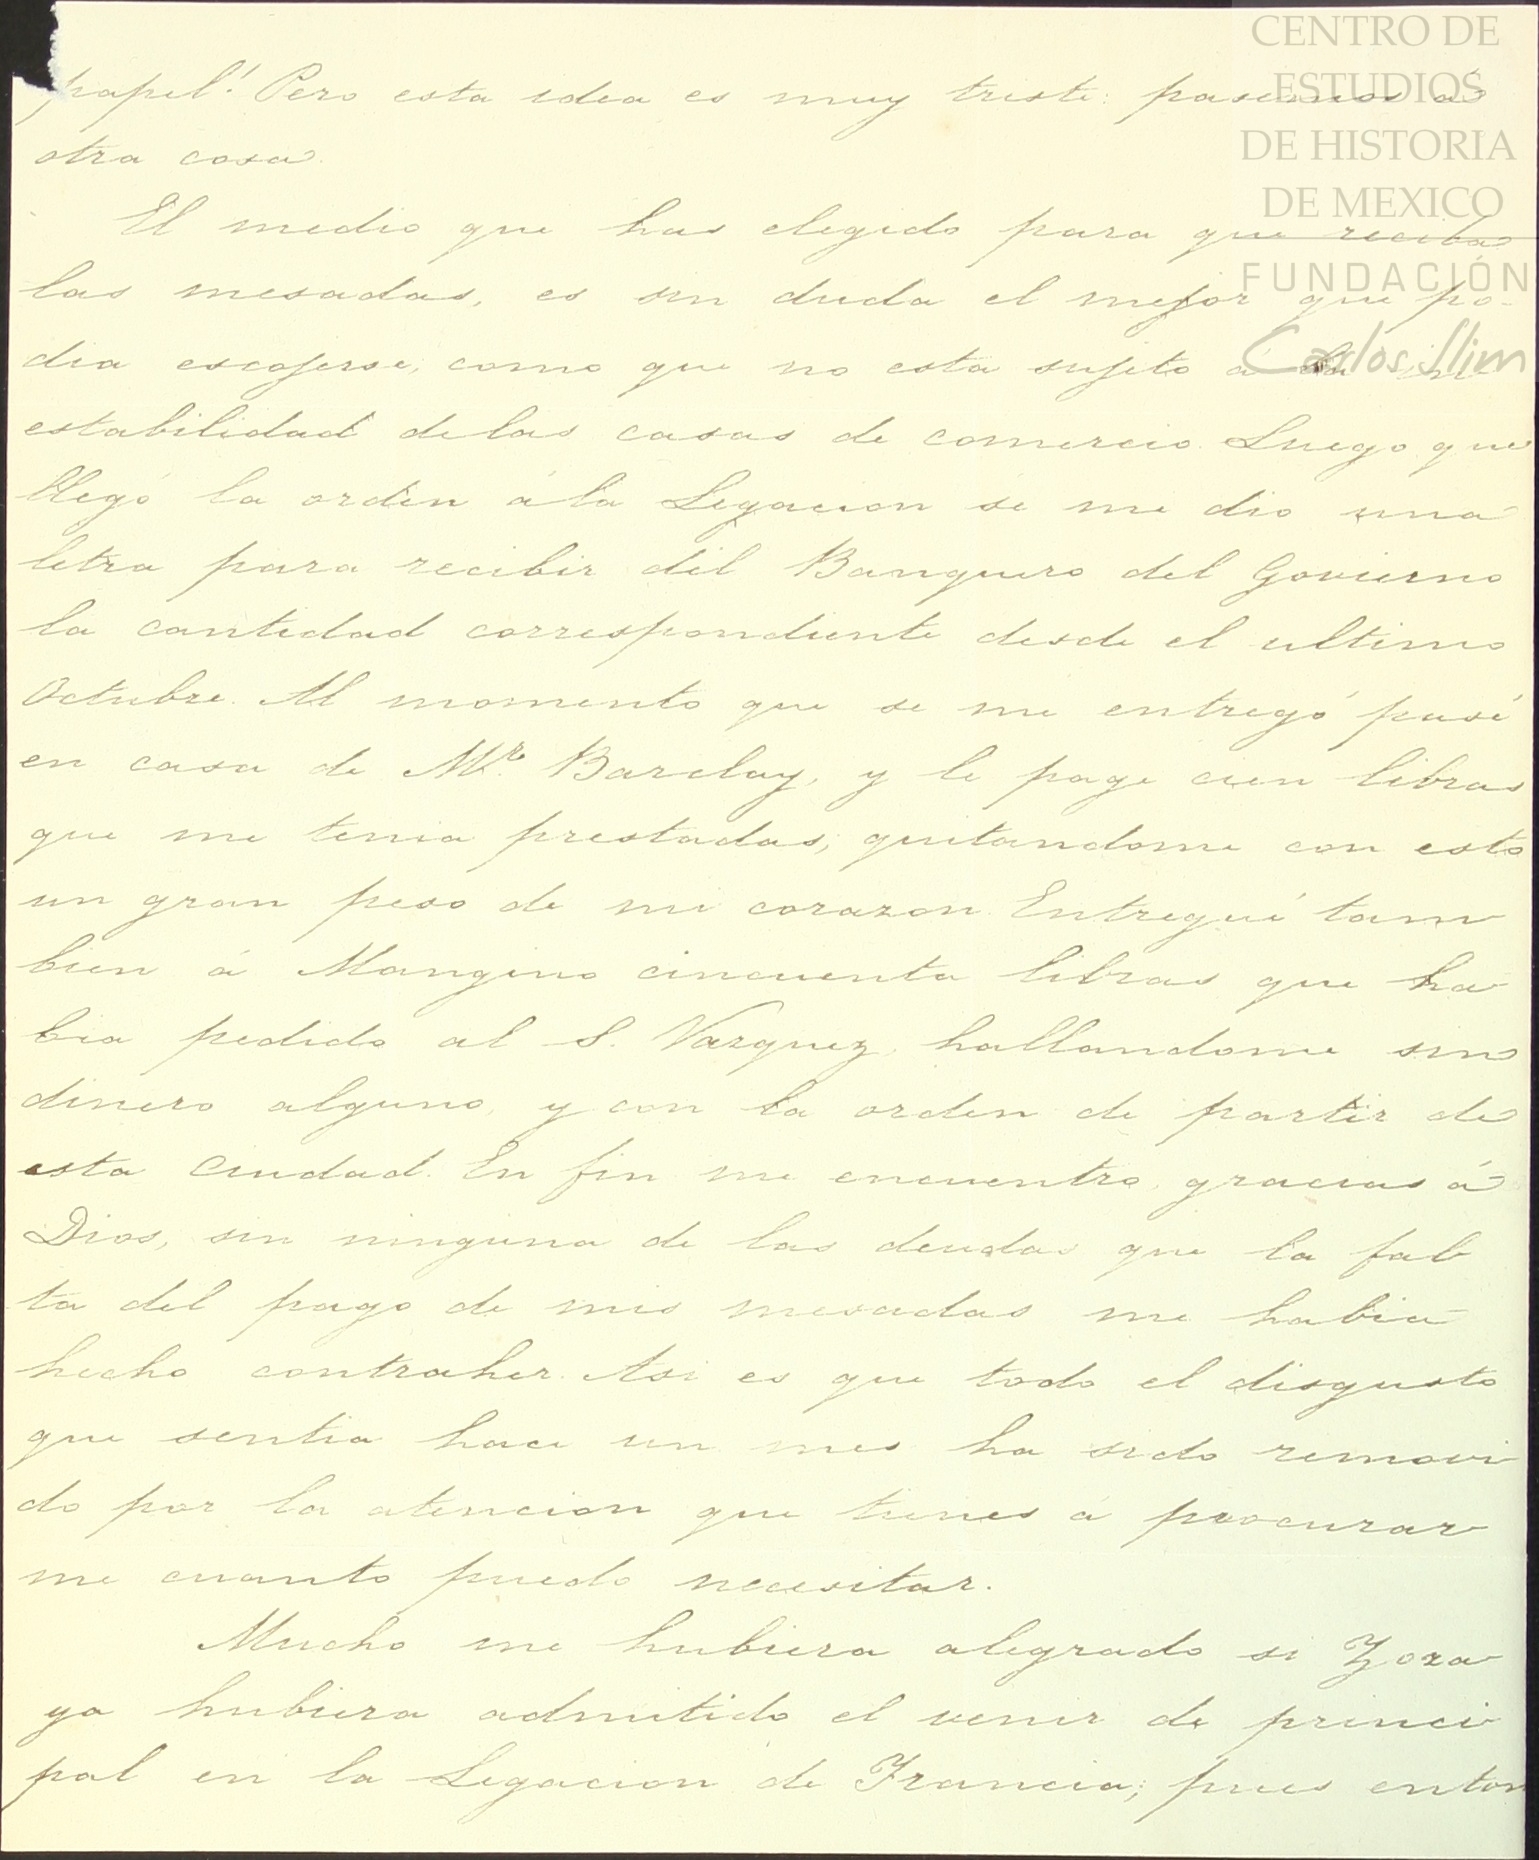 CENTRO DE
ESTUDIOS
DE HISTORIA
DE MEXICO
FUNDACIÓN
Carlos Slim
papel! Pero esta idea es muy triste: pasemos á
otra cosa.
El medio que has elegido para que reciba
las mesadas, es sin duda el mejor que po-
dia escojerse, como que no esta sujeto á la in
estabilidad delas casas de comercio. Luego que
llegó la orden ála Legacion se me dio una
letra para recibir del Banquero del Govierno
la cantidad correspondiente desde el ultimo
Octubre. Al momento que se me entregó pasé
en casa de Mr. Barclay, y le page cien libras
que me tenia prestadas, quitandome con esto
un gran peso de mi corazon. Entregué tam
bien á Mangino cincuenta libras que ha
bia pedido al S. Vazquez, hallandome sin
dinero alguno, y con la orden de partir de
esta Ciudad. En fin me encuentro, gracias á
Dios, sin ninguna de las deudas que la fal
ta del pago de mis mesadas me habia
hecho contraher. Asi es que todo el disgusto
que sentia hace un mes ha sido removi
do por la atencion que tienes á procurar
me cuanto puedo necesitar.
Mucho me hubiera alegrado si Zoza
ya hubiera admitido el venir de princi
pal en la Legacion de Francia; pues enton